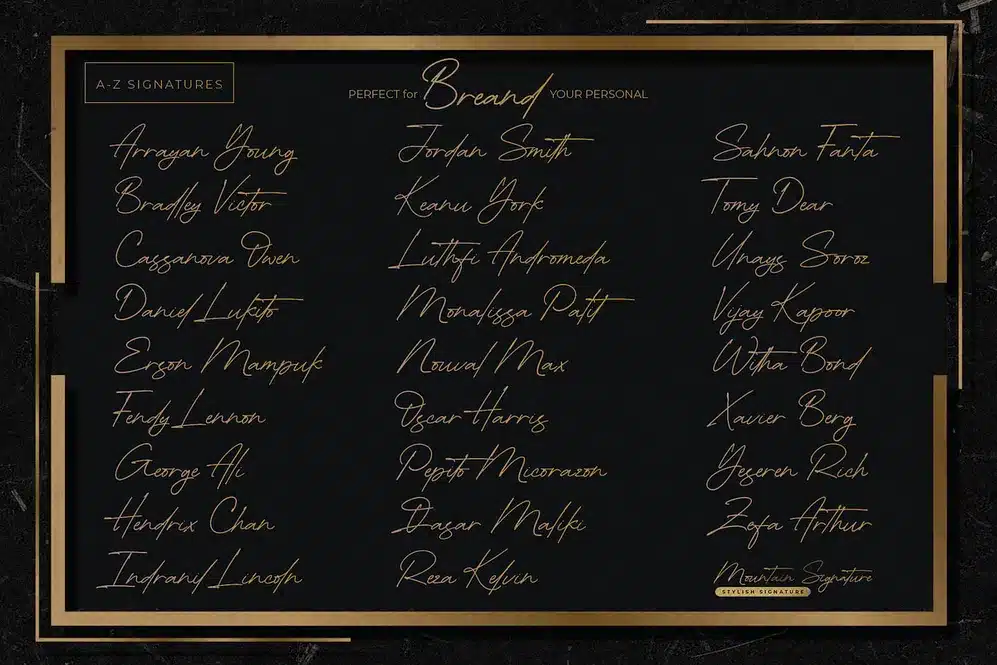 A-Z SIGNATURES
PERFECT for Breand YOUR PERSONAL
Arrayan Young
Bradley Victor
Cassanova Owen
Daniel Lukito
Erson Mampuk
Fendy Lennon
George Ali
Hendrix Chan
Indranil Lincoln
Jordan Smith
Keanu York
Luthfi Andromeda
Monalissa Patit
Nouval Max
Oscar Harris
Pepito Micorazon
Maliki
Reza Kelvin
Sahnon Fanta
Tomy Dear
Unays Soroz
Vijay Kapoor
Witha Bond
Xavier Berg
Yeseren Rich
Zefa Arthur
Mountain Signature
STYLISH SIGNATURE